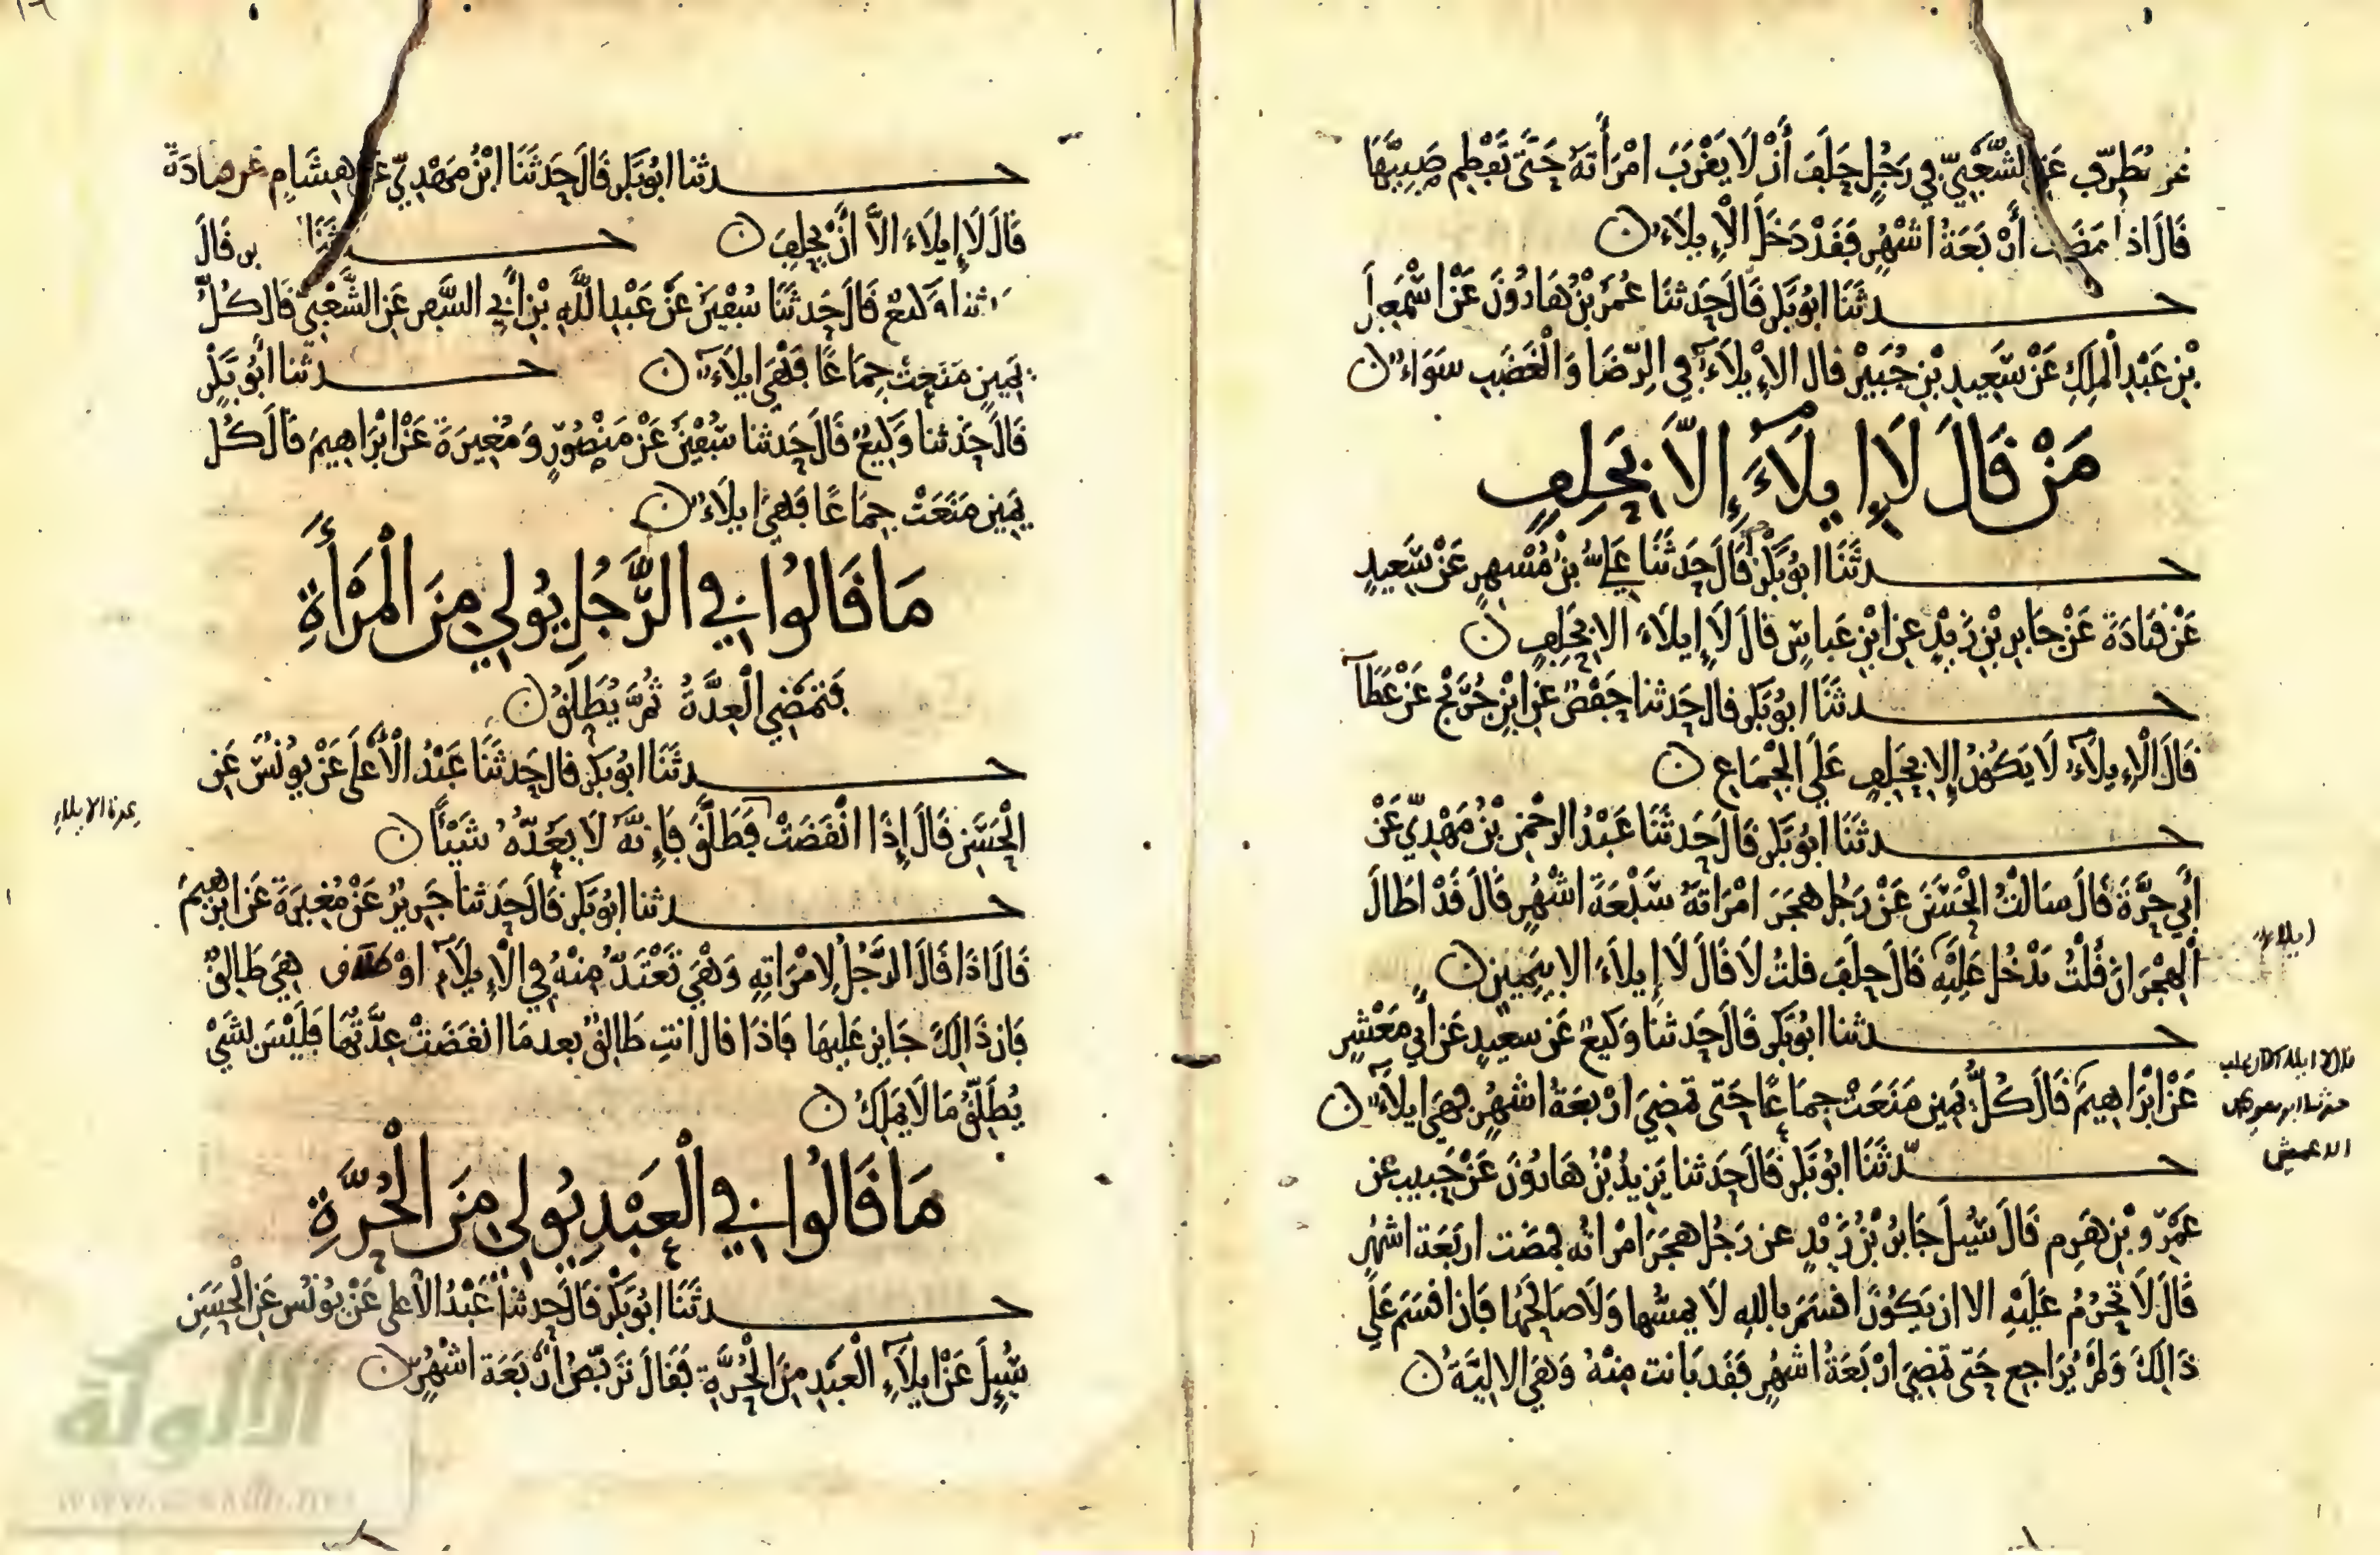 عَنْ مُطَرِّفٍ عَنِ الشَّعْبِيِّ فِي رَجُلٍ حَلَفَ أَنْ لَا يَقْرَبَ امْرَأَتَهُ حَتَّى تَفْطِمَ صَبِيَّهَا
قَالَ اذا مَضَت أَرْبَعَةُ اشْهُرٍ فَقَدْ دَخَلَ الْإِيلَاءُ
حدثَنَا ابُو بَكْرٍ قَالَ حَدثَنَا عُمَرُ بْنُ هَارُونَ عَنْ اسْمَعِيلَ
بْنِ عَبْدِ الْمَلِكِ عَنْ سَعِيدِ بْنِ جُبَيْرٍ قال الإِيلَاءُ فِي الرِّضَا وَالْغَضَبِ سَوَاءٌ
مَنْ قَالَ لَا إِيلَاءَ إِلَّا بِحَلِفٍ
حدثَنَا ابُو بَكْرٍ قَالَ حَدثَنَا عَلِيُّ بْنُ مُسْهِرٍ عَنْ سَعِيدٍ
عَنْ قتَادَةَ عَنْ جَابِرِ بْنِ زَيْدٍ عنِ ابْنِ عَباسٍ قالَ لَا إِيلَاءَ الا بِحَلِفٍ
حدثَنَا ابُو بَكْرٍ قال حَدثنا حَفْصٌ عَنِ ابْنِ جُرَيْجٍ عَنْ عَطَآ
قَالَ الْإِيلَاءُ لَا يَكُونُ إِلا بِحَلِفٍ عَلَى الْجِمَاعِ
حدثَنَا ابُو بَكْرٍ قَالَ حَدثَنَا عَبْدُ الرحْمنِ بْنُ مَهْدِيٍّ عَنْ
أَبِي حُرَّةَ قَالَ سَالْتُ الْحَسَنَ عَنْ رَجُلٍ هَجَرَ امْرَاتَهُ سَبْعَةَ اشْهُرٍ قَالَ قَدْ اطَالَ
الْهِجْرَانَ قُلْتُ يَدْخُلُ عَلَيْهِ قَالَ حلَفَ قلتُ لَا قَالَ لَا إِيلَاءَ الا بِيَمِينٍ
حدثنا ابُو بَكْرٍ قَالَ حَدثنَا وَكيعٌ عَن سعيدٍ عَن أَبِي مَعْشَرٍ
عَنْ ابْرَاهِيمَ قَالَ كُلُّ يَمِينٍ مَنَعَتْ جِمَاعًا حَتى تمضِيَ ارْبَعَةُ اشْهُرٍ فهيَ ايلَآءٌ
حدثَنَا ابُو بَكْرٍ قَالَ حَدثنا يَزِيدُ بْنُ هَارُونَ عَنْ حَبِيبٍ عن
عَمْرِو بْنِ هَرِمٍ قَالَ سُيلَ جَابِرُ بْنُ زَيْدٍ عن رَجُلٍ هجَرَ امْرَاتهُ فمضَت ارْبَعَة اشْهُرٍ
قَالَ لَا تَحْرُمُ عَلَيْهِ الا ان يَكُونَ اقسَمَ باللهِ لَا يمسُّها وَلَا صَالَحَهَا فَان اقسَمَ عَلَى
ذَالِكَ وَلَمْ يُرَاجِع حَتى تمضِيَ ارْبَعَةُ اشْهُرٍ فقَد بَانت مِنْهُ وَهيَ الالِيَّةُ
ايلاء
الاعمش
حدثنا ابُو بَكْرٍ قَالَ حَدثَنَا ابْنُ مَهْدِيٍّ عَنْ هِشَامٍ عَن قَتَادَةَ
قَالَ لَا إِيلَاءَ الَّا أَنْ يَحْلِفَ حدثَنَا قَالَ
وَكيعٌ قَالَ حَدثَنَا سُفْيَنُ عَنْ عَبْدِ اللَّهِ بْنِ أَبِي السَّفَرِ عَنِ الشَّعْبِيِّ قَال كُلُّ
يَمِينٍ مَنَعَتْ جِمَاعًا فَهْيَ ايلَآءٌ حدثنا أَبُو بَكْرٍ
قَالَ حَدثنا وَكِيعٌ قَالَ حَدثنا سُفْيَنُ عَنْ مَنْصُورٍ وَمُغِيرَةَ عَنْ ابْرَاهِيمَ قَالَ كُلُّ
يَمِينٍ مَنَعَتْ جِمَاعًا فَهِيَ ايلَاءٌ
مَا قَالُوا فِي الرَّجُلِ يُولِي مِنَ الْمَرْأَةِ
فَتَمْضِي الْعِدَّةُ ثُمَّ يُطَلِّقُ
حدثَنَا ابُو بَكْرٍ قال حَدثَنَا عَبْدُ الْأَعْلَى عَنْ يُونُسَ عَنِ
الْحَسَنِ قَالَ إِذَا انْقَضَتْ فَطَلَّقَ فَإِنَّهُ لَا يَعُدُّهُ شَيْئًا
حدثنا ابُو بَكْرٍ قَالَ حَدثنَا جَرِيرٌ عَنْ مُغِيرَةَ عَنْ ابْرهِيمَ
قَالَ اذَا قَالَ الرَّجُلُ لِامْرَاتِهِ وَهْيَ تَعْتَدُّ مِنْهُ فِي الْإِيلَآءِ اوْ طَلَاقٍ هِيَ طَالِقٌ
فَان ذَالِكَ جَايز عَلَيهَا فَاذَا قال انتِ طَالِقٌ بعدمَا انقضَتْ عِدَّتُهَا فَلَيْسَ بشَيْ
يُطَلِّقُ مَا لَا يَمْلِكُ
مَا قَالُوا فِي الْعَبْدِ يُولِي مِنَ الْحُرَّةِ
حدثَنَا ابُو بَكْرٍ قَالَ حَدثنا عَبْدُ الْأعلى عَنْ يُونُسَ عَنِ الْحَسَنِ
سُيِلَ عَنْ ايلَآءِ الْعَبْدِ مِنَ الْحُرَّةِ فَقَالَ تَرَبَّصُ أَرْبَعَةَ اشْهُرٍ
عدة الايلاء
الألوكة